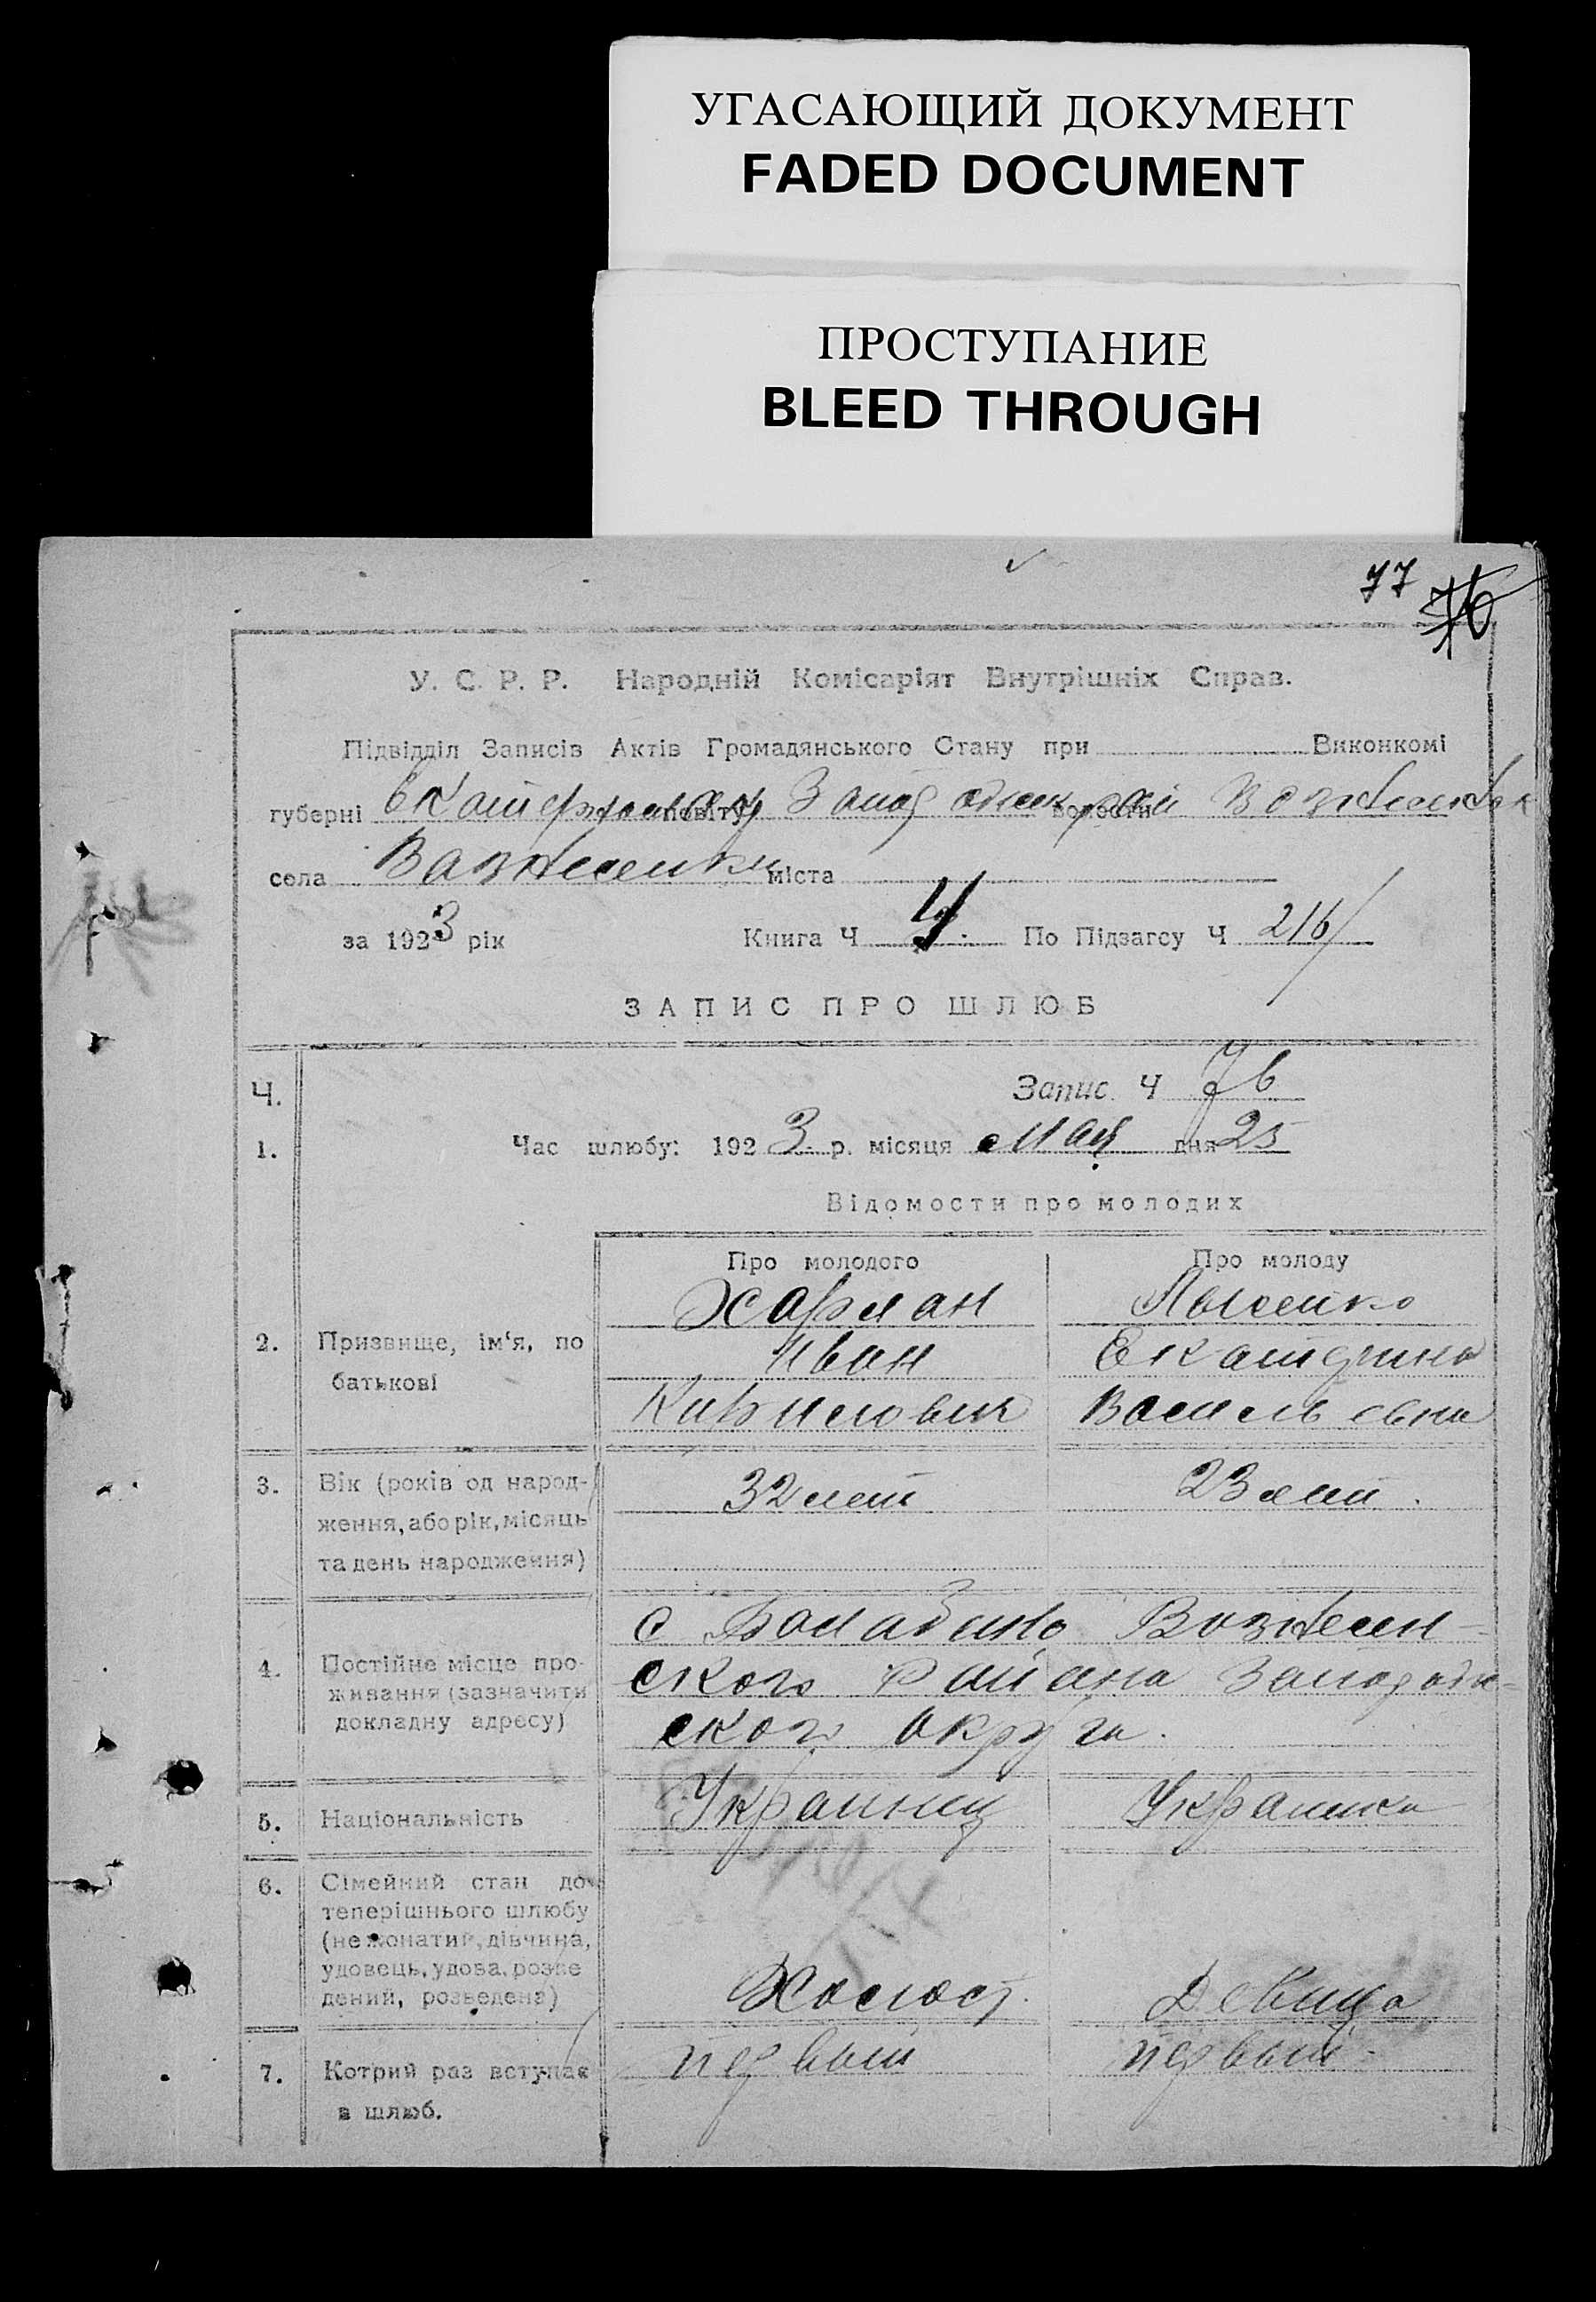 УГАСАЮЩИЙ ДОКУМЕНТ
FADED DOCUMENT
ПРОСТУПАНИЕ
BLEED THROUGH
77 76
У. С. Р. Р. Народній Комісаріят Внутрішніх Справ.
Підвідділ Записів Актів Громадянського Стану при Виконкомі
губерні повіту волости
села Вознесенки міста
за 1923 рік Книга Ч 4. По Підзагсу Ч 216
ЗАПИС ПРО ШЛЮБ
Ч. Запис Ч 76
1. Час шлюбу: 1923 р. місяця Мая дня 25
Відомости про молодих
Про молодого Про молоду
Харлан
2. Призвище, ім‘я, по Иван Екатерина
батькові
Кирилович Васильевна
3. Вік (років од народ- 32 лет 23 лет.
ження, або рік, місяць
та день народження)
с Балабино Вознесен-
4. Постійне місце про- ского района Запорож-
живання (зазначити
докладну адресу) ского округа.
5. Національність Украинец Украинка
6. Сімейний стан до
теперішнього шлюбу
(не жонатий, дівчина,
удовець, удова, розве
дений, розведена) Холост. Девица
7. Котрий раз вступає первый первый
в шлюб.